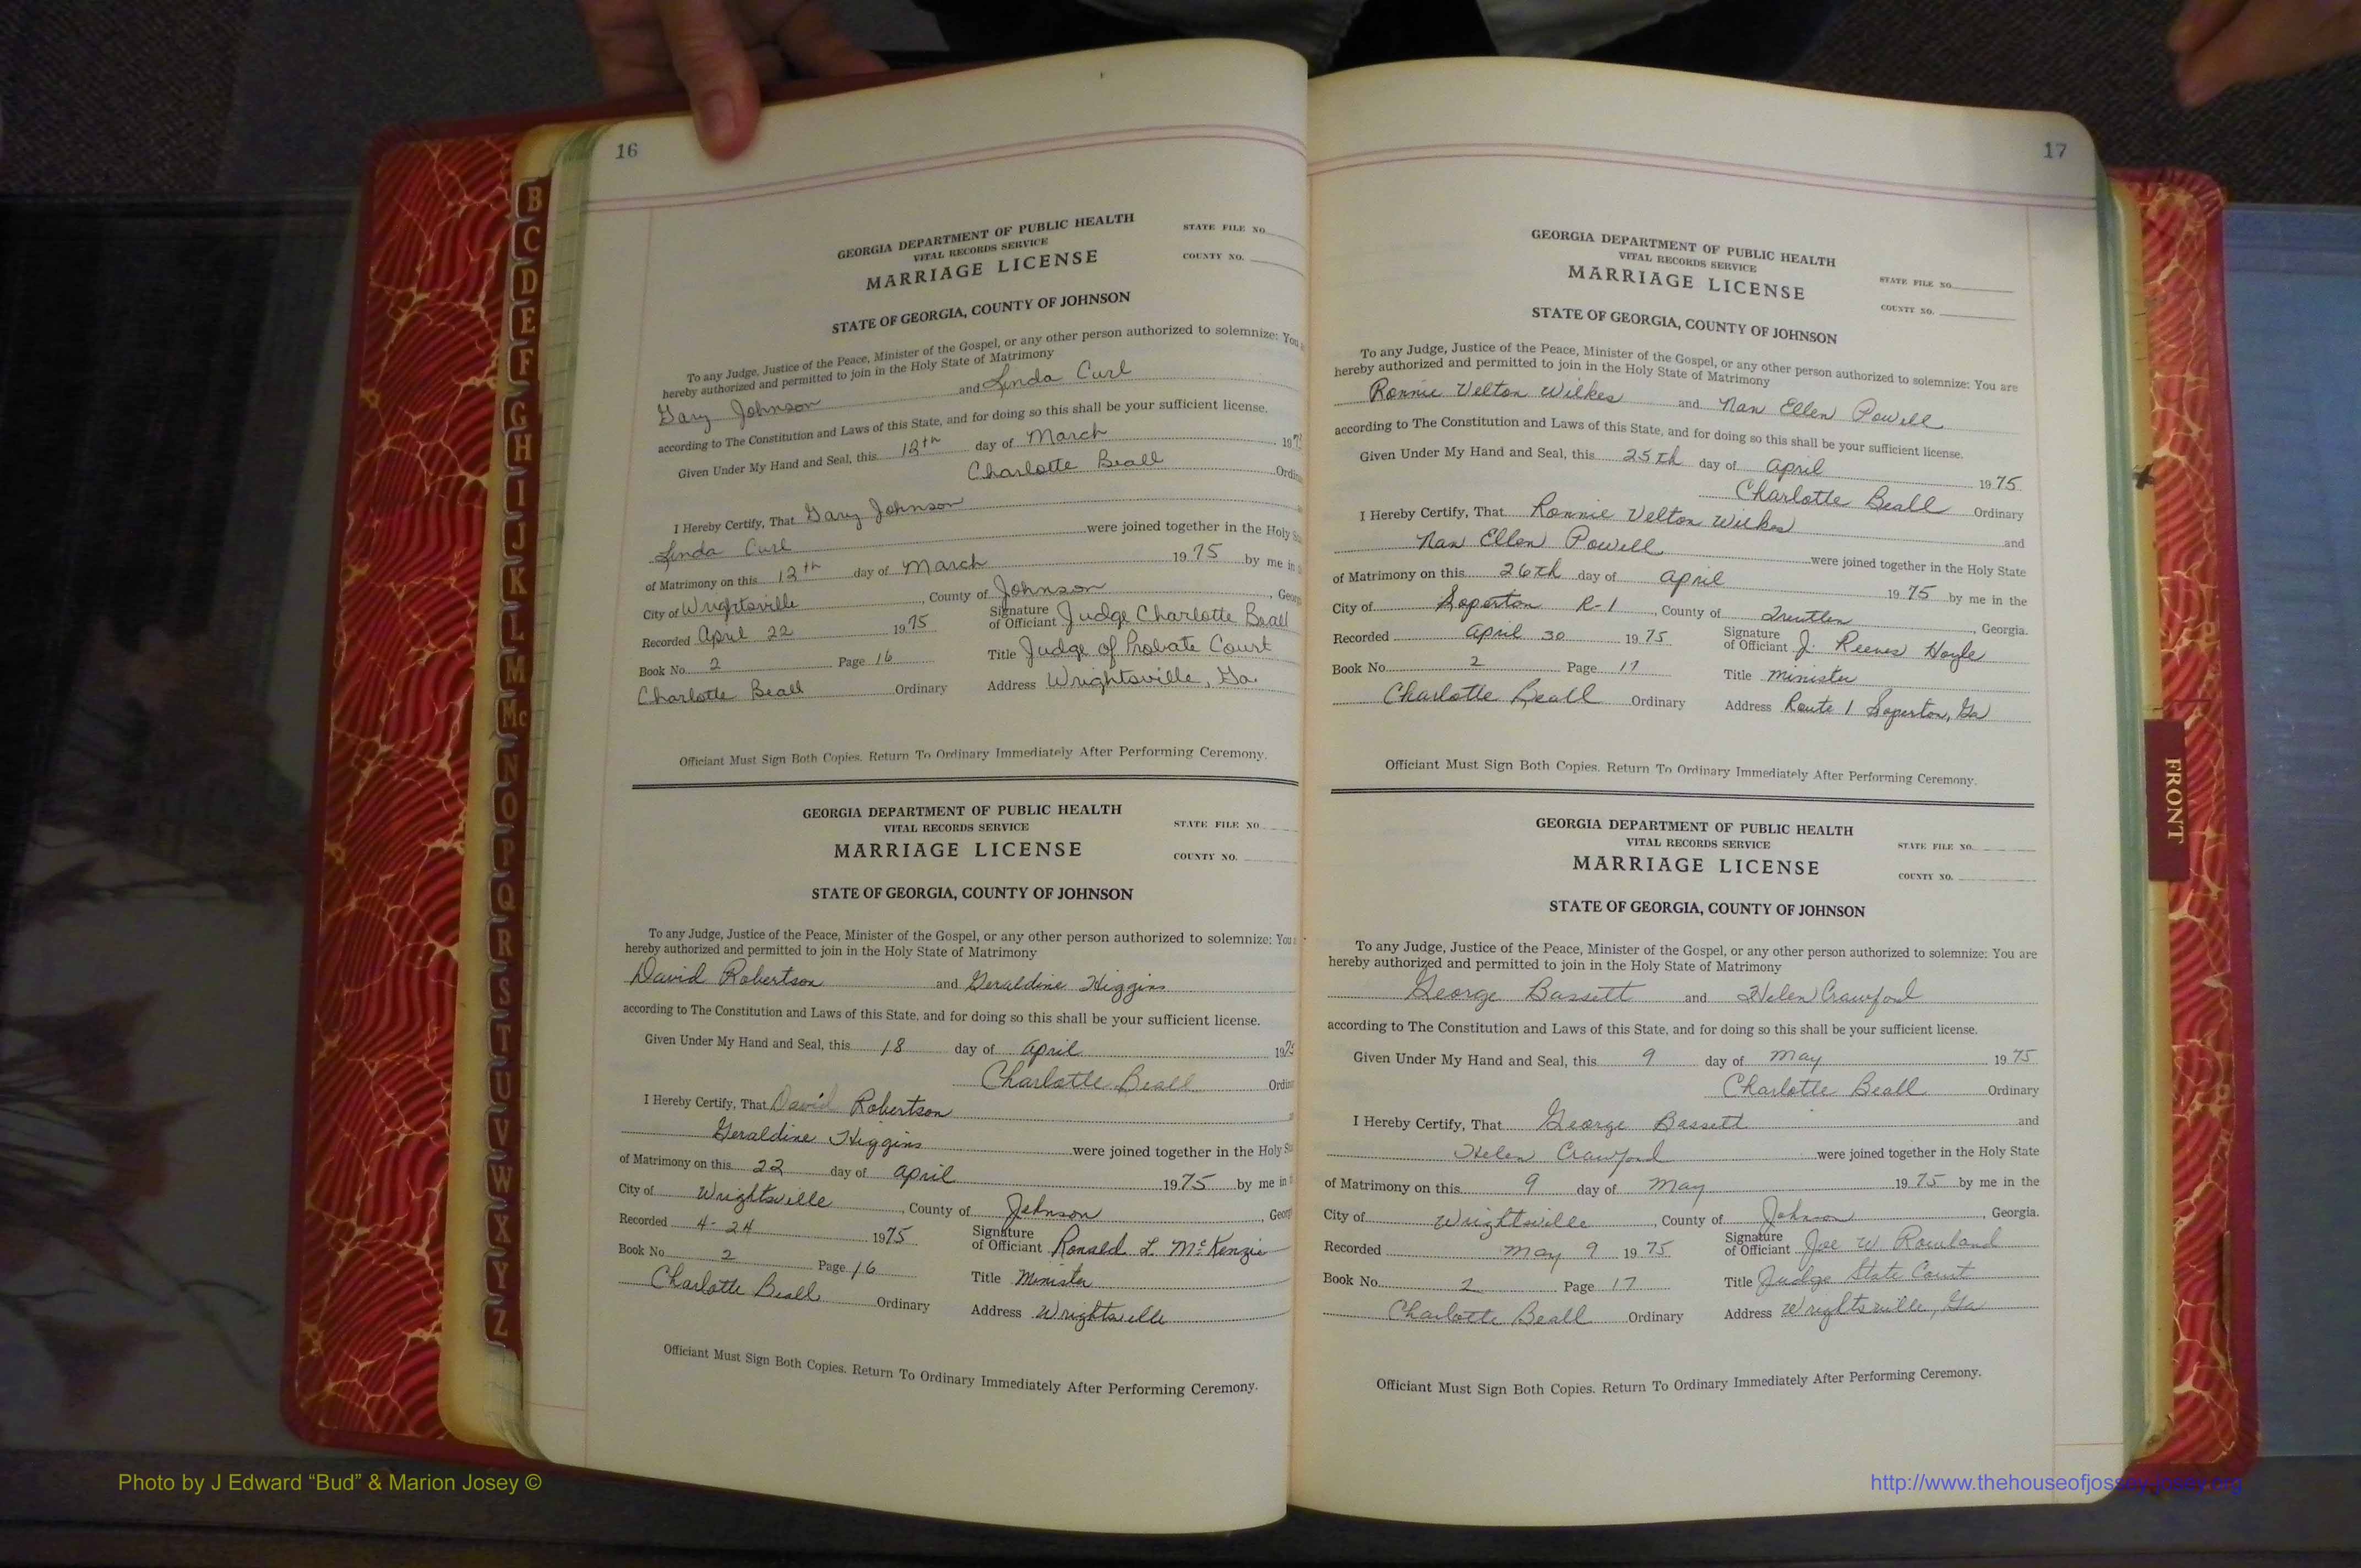 16
GEORGIA DEPARTMENT OF PUBLIC HEALTH
VITAL RECORDS SERVICE
MARRIAGE LICENSE
STATE FILE NO.
COUNTY NO.
STATE OF GEORGIA, COUNTY OF JOHNSON
To any Judge, Justice of the Peace, Minister of the Gospel, or any other person authorized to solemnize: You
hereby authorized and permitted to join in the Holy State of Matrimony
Gary Johnson and Linda Curl
according to The Constitution and Laws of this State, and for doing so this shall be your sufficient license.
Given Under My Hand and Seal, this 12th day of March 197
Charlotte Beall Ordin
I Hereby Certify, That Gary Johnson
Linda Curl were joined together in the Holy S
of Matrimony on this 12th day of March 1975 by me in
City of Wrightsville, County of Johnson, Georg
Recorded April 22 1975 Signature of Officiant Judge Charlotte Beall
Book No. 2 Page 16 Title Judge of Probate Court
Charlotte Beall Ordinary Address Wrightsville, Ga.
Officiant Must Sign Both Copies. Return To Ordinary Immediately After Performing Ceremony.
GEORGIA DEPARTMENT OF PUBLIC HEALTH
VITAL RECORDS SERVICE
MARRIAGE LICENSE
STATE FILE NO.
COUNTY NO.
STATE OF GEORGIA, COUNTY OF JOHNSON
To any Judge, Justice of the Peace, Minister of the Gospel, or any other person authorized to solemnize: You
hereby authorized and permitted to join in the Holy State of Matrimony
David Robertson and Geraldine Higgins
according to The Constitution and Laws of this State, and for doing so this shall be your sufficient license.
Given Under My Hand and Seal, this 18 day of April 197
Charlotte Beall Ordin
I Hereby Certify, That David Robertson
Geraldine Higgins were joined together in the Holy S
of Matrimony on this 22 day of April 1975 by me in
City of Wrightsville, County of Johnson, Georg
Recorded 4-24 1975 Signature of Officiant Ronald L. McKenzie
Book No. 2 Page 16 Title Minister
Charlotte Beall Ordinary Address Wrightsville
Officiant Must Sign Both Copies. Return To Ordinary Immediately After Performing Ceremony.
17
GEORGIA DEPARTMENT OF PUBLIC HEALTH
VITAL RECORDS SERVICE
MARRIAGE LICENSE
STATE FILE NO.
COUNTY NO.
STATE OF GEORGIA, COUNTY OF JOHNSON
To any Judge, Justice of the Peace, Minister of the Gospel, or any other person authorized to solemnize: You are
hereby authorized and permitted to join in the Holy State of Matrimony
Ronnie Velton Wilkes and Nan Ellen Powell
according to The Constitution and Laws of this State, and for doing so this shall be your sufficient license.
Given Under My Hand and Seal, this 25th day of April 1975
Charlotte Beall Ordinary
I Hereby Certify, That Ronnie Velton Wilkes and
Nan Ellen Powell were joined together in the Holy State
of Matrimony on this 26th day of April 1975 by me in the
City of Soperton R-1, County of Treutlen, Georgia.
Recorded April 30 1975 Signature of Officiant J. Reeves Hoyle
Book No. 2 Page 17 Title Minister
Charlotte Beall Ordinary Address Route 1 Soperton, Ga
Officiant Must Sign Both Copies. Return To Ordinary Immediately After Performing Ceremony.
GEORGIA DEPARTMENT OF PUBLIC HEALTH
VITAL RECORDS SERVICE
MARRIAGE LICENSE
STATE FILE NO.
COUNTY NO.
STATE OF GEORGIA, COUNTY OF JOHNSON
To any Judge, Justice of the Peace, Minister of the Gospel, or any other person authorized to solemnize: You are
hereby authorized and permitted to join in the Holy State of Matrimony
George Bassett and Helen Crawford
according to The Constitution and Laws of this State, and for doing so this shall be your sufficient license.
Given Under My Hand and Seal, this 9 day of May 1975
Charlotte Beall Ordinary
I Hereby Certify, That George Bassett and
Helen Crawford were joined together in the Holy State
of Matrimony on this 9 day of May 1975 by me in the
City of Wrightsville, County of Johnson, Georgia.
Recorded May 9 1975 Signature of Officiant Joe W. Rowland
Book No. 2 Page 17 Title Judge State Court
Charlotte Beall Ordinary Address Wrightsville, Ga
Officiant Must Sign Both Copies. Return To Ordinary Immediately After Performing Ceremony.
B
C
D
E
F
G
H
I
J
K
L
M
Mc
N
O
P
Q
R
S
T
U
V
W
X
Y
Z
FRONT
Photo by J Edward “Bud” & Marion Josey ©
http://www.thehouseofjossey-josey.org